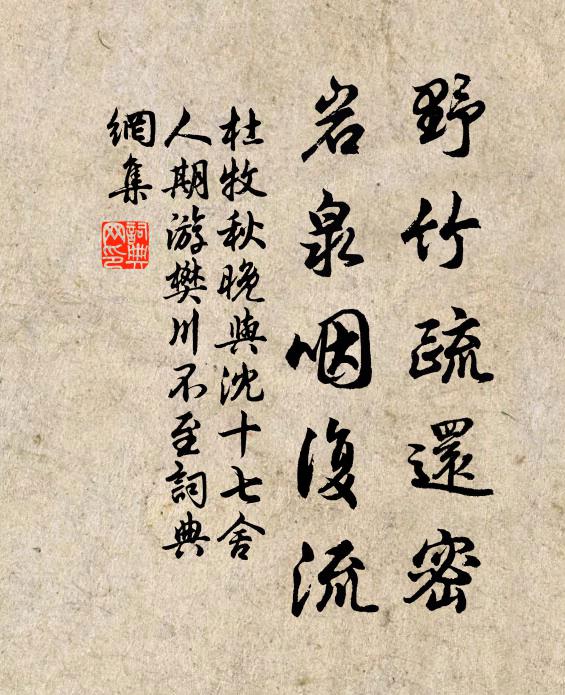 野竹疏還密
岩泉咽復流
杜牧秋晚與沈十七舍
人期游樊川不至詞典
網集
詞典
网印